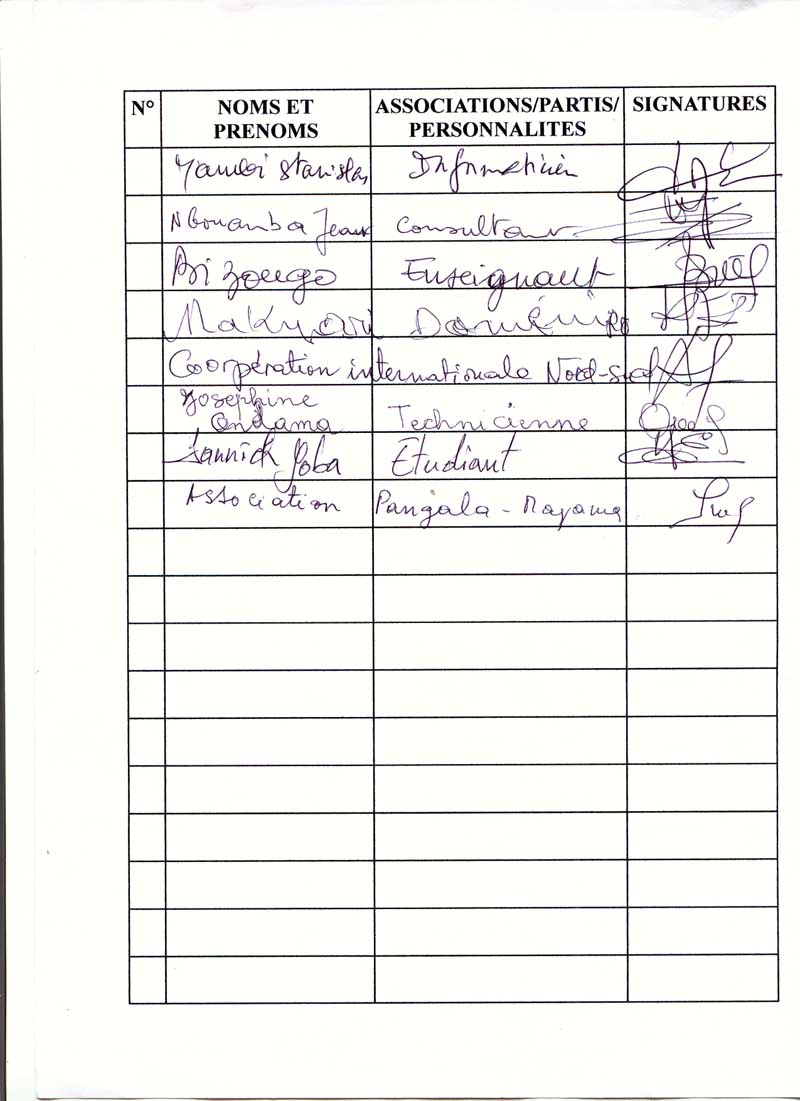 N° NOMS ET PRENOMS ASSOCIATIONS/PARTIS/ PERSONNALITES SIGNATURES
Stanislas Informaticien
Nbouamba Jean Consultant
Bizongo Enseignant
Coopération internationale Nord-sud
Josephine
Ondama Technicienne
Yannick Poba Etudiant
Association Pangala - Mayama